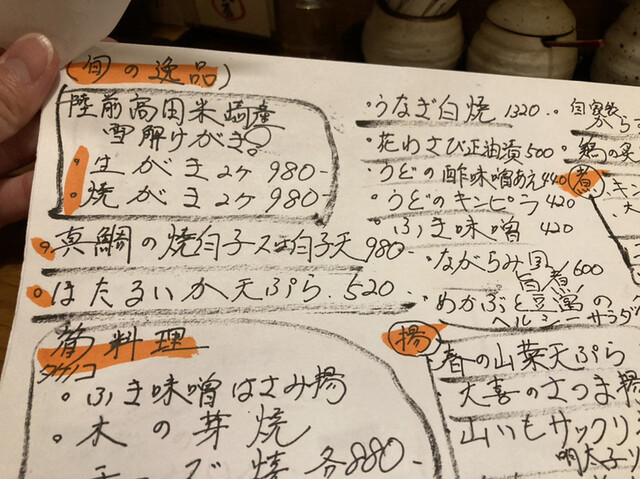 (旬の逸品)
陸前高田米崎産
雪解けがき。
・生がき2ヶ 980-
・焼がき2ヶ 980-
真鯛の焼白子又は白子天 980-
ほたるいか天ぷら 520-
筍料理
タケノコ
ふき味噌はさみ揚
木の芽焼
チーズ焼 各880-
・うなぎ白焼 1320
・花わさび正油漬 500
・うどの酢味噌あえ 440
・うどのキンピラ 420
・ふき味噌 420
・ながらみ旨煮 600
・めかぶと豆富の
ヘルシーサラダ
揚
春の山菜天ぷら
大喜のさつま揚
山いもサックリ
明太子
自家製
からす
煮